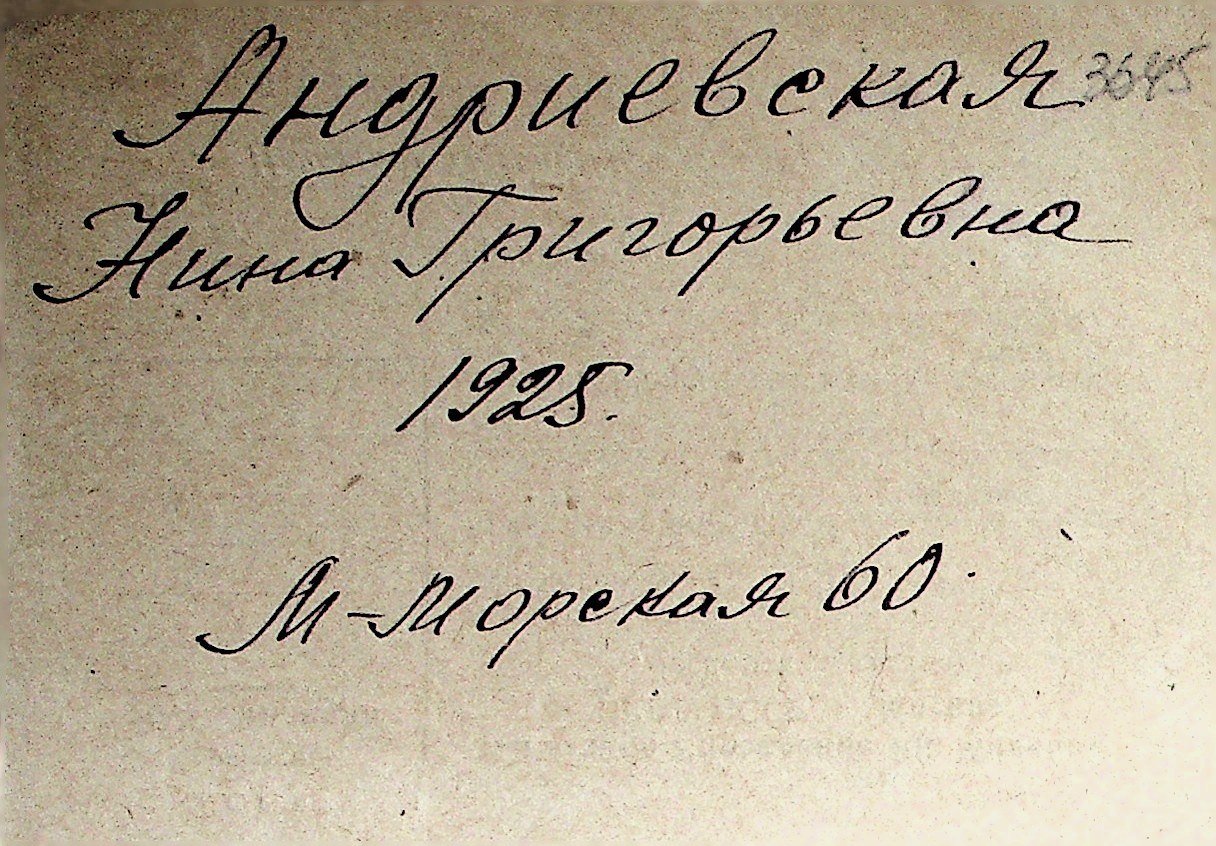 Андриевская 3645
Нина Григорьевна
1925.
М-Морская 60.